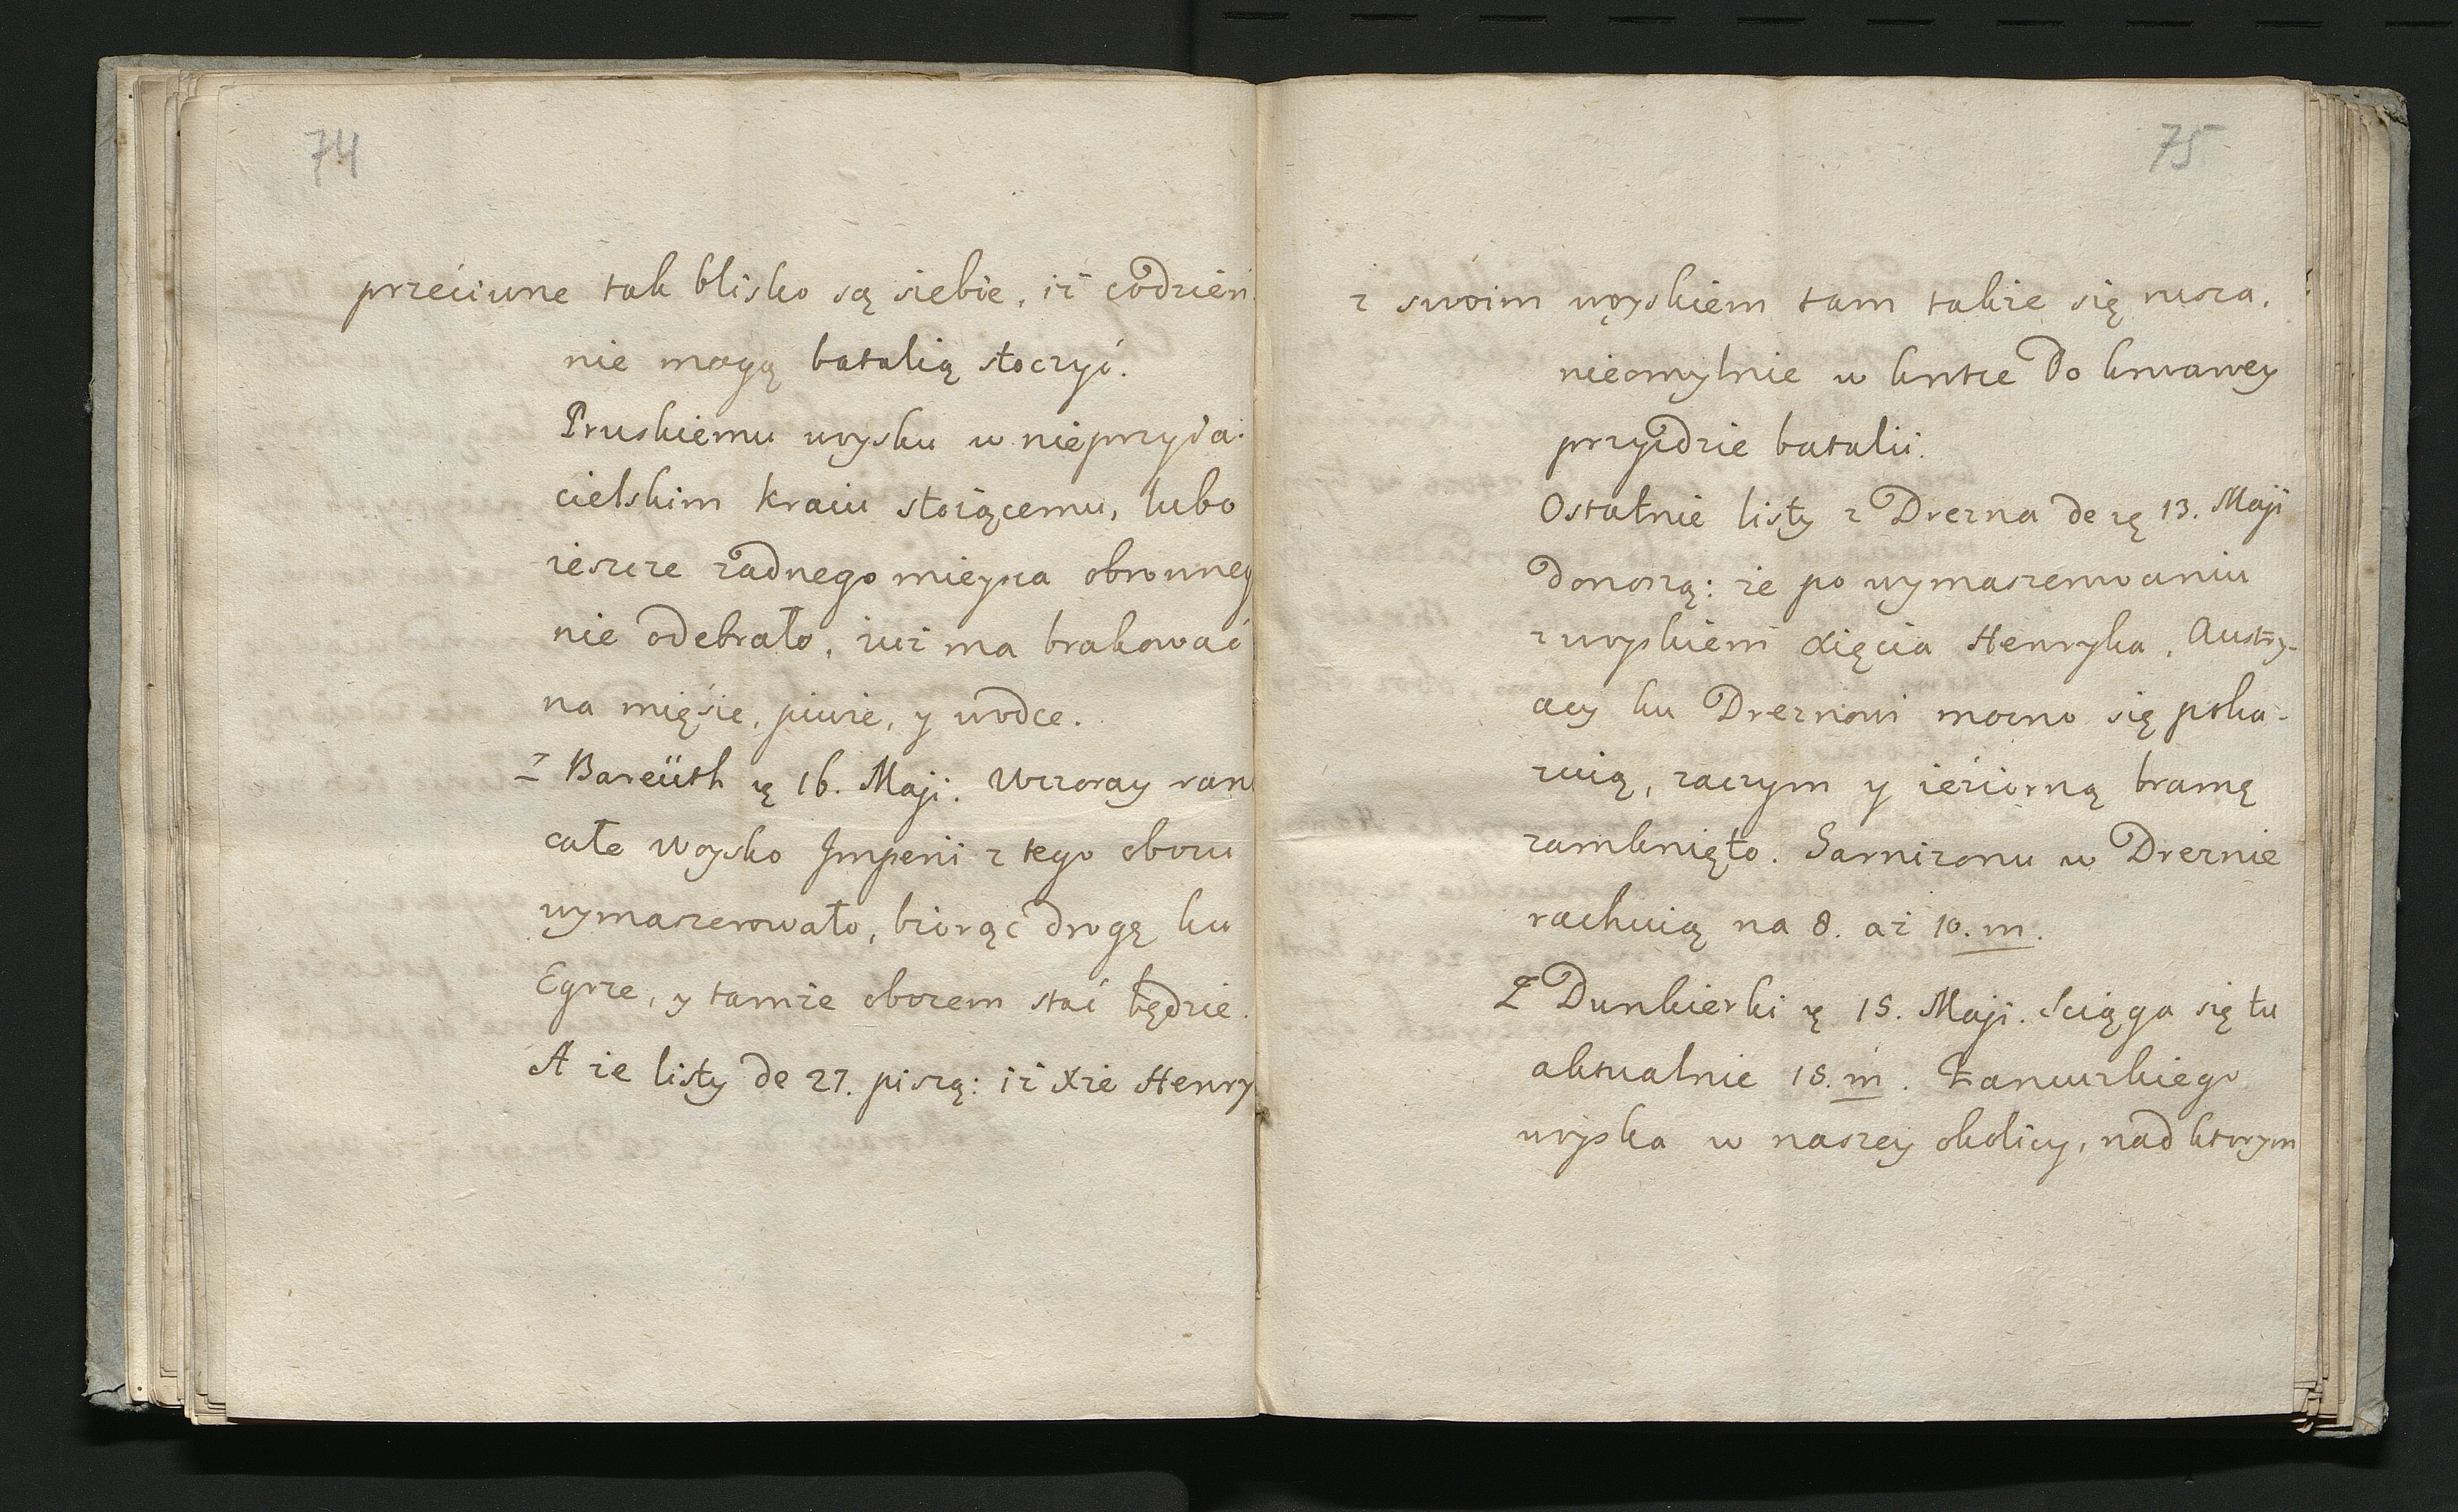 74
przeciwne tak blisko są siebie, iż codzień
nie mogą batalią stoczyć.
Pruskiemu woysku w nieprzyia-
cielskim kraiu stoiącemu, lubo
ieszcze żadnego mieysca obronneg
nie odebrało, iuż ma brakować
na mięsie, piwie, y wodce.
Z Bareüth ꝛę 16. Maji. Wczoray ran
całe woysko Imperii z tego obozu
wymaszerowało, biorąc drogę ku
Egrze, y tamże obozem stać będzie.
A że listy de 27. piszą: iż Xże Henry
75
z swoim woyskiem tam także się rusza,
nieomylnie w krotce do krwawey
przyidzie batalii.
Ostatnie listy z Drezna de ꝛę 13. Maji
donoszą: że po wymaszerowaniu
z woyskiem Xięcia Henryka, Austry-
acy ku Dreznowi mocno się poka-
zuią, zaczym y ieziorną bramę
zamknięto. Garnizonu w Dreznie
rachuią na 8. aż 10. m.
Z Dunkierki ꝛę 15. Maji. Sciąga się tu
aktualnie 18. m. Francuzkiego
woyska w naszey okolicy, nad ktorym